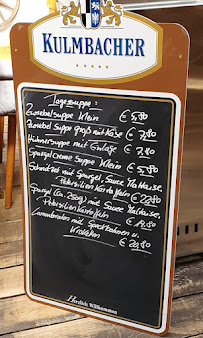 KULMBACHER
Tagessuppe:
Zwiebelsuppe Klein € 5,80
Zwiebel Suppe groß mit Käse € 7,80
Hühnersuppe mit Einlage € 7,80
Spargel Creme Suppe Klein € 5,80
Schnitzel mit Spargel, Sauce
Petersilien Kartoffeln € 22,80
Spargel (ca. 250g) mit Sauce
Petersilien Kartoffeln € 14,80
mit Speckbohnen u.
Kroketten € 20,80
Herzlich Willkommen